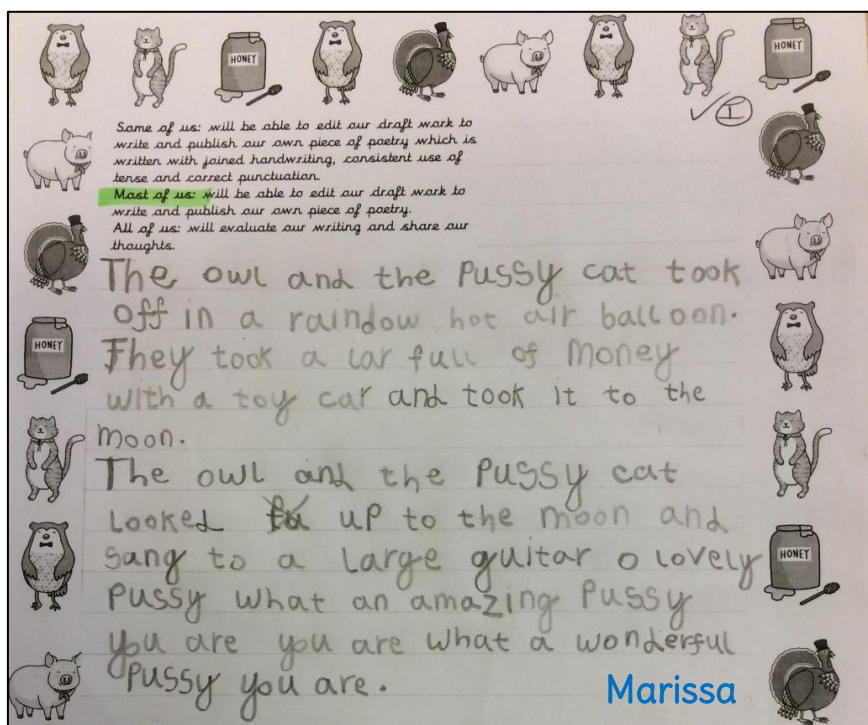 HONEY
HONEY
I
Some of us: will be able to edit our draft work to
write and publish our own piece of poetry which is
written with joined handwriting, consistent use of
tense and correct punctuation.
Most of us: will be able to edit our draft work to
write and publish our own piece of poetry.
All of us: will evaluate our writing and share our
thoughts.
The owl and the pussy cat took
off in a raindow hot air balloon.
HONEY
They took a lar full of money
with a toy car and took it to the
moon.
The owl and the pussy cat
looked up to the moon and
sang to a large guitar o lovely
HONEY
pussy what an amazing pussy
you are you are what a wonderful
pussy you are.
Marissa